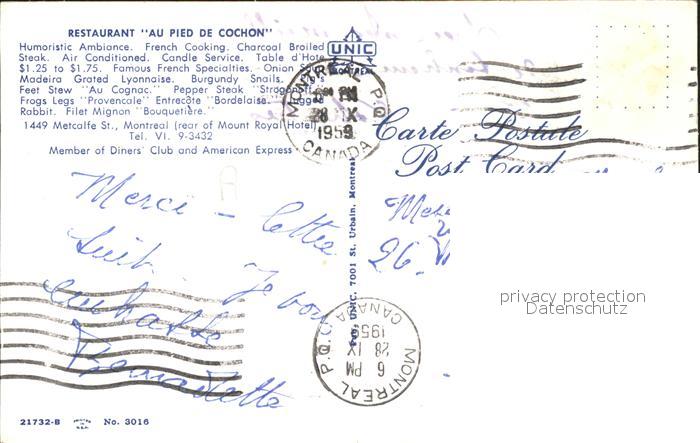 RESTAURANT "AU PIED DE COCHON"
Humoristic Ambiance. French Cooking. Charcoal Broiled
Steak. Air Conditioned. Candle Service. Table d'Hote
$1.25 to $1.75. Famous French Specialties. Onion
Madeira Grated Lyonnaise. Burgundy Snails.
Feet Stew "Au Cognac." Pepper Steak
Frogs Legs "Provencale" Entrecôte "Bordelaise."
Rabbit. Filet Mignon "Bouquetière."
1449 Metcalfe St., Montreal (rear of Mount Royal Hotel)
Tel. VI. 9-3432
Member of Diners' Club and American Express
UNIC
MONTREAL
MONTREAL P.Q.
PM
28 IX
1959
CANADA
Carte Postale
Post Card
Merci - lettre
suit. Je vous
embrasse
Bernadette
26.
Pub. UNIC, 7001 St. Urbain, Montreal
MONTREAL P.Q.
6 PM
28 IX
1959
CANADA
privacy protection
Datenschutz
21732-B
No. 3016